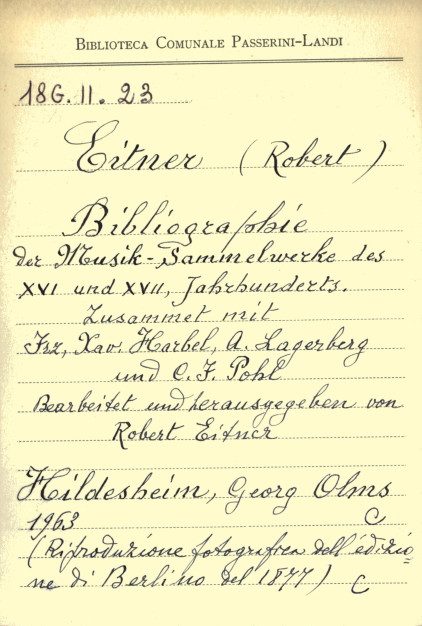 BIBLIOTECA COMUNALE PASSERINI-LANDI
18G. II. 23
Eitner (Robert)
Bibliographie
der Musik-Sammelwerke des
XVI und XVII, Jahrhunderts.
Zusammet mit
Frz, Xav. Harbel, A. Lagerberg
und C. F. Pohl
Bearbeitet und herausgegeben von
Robert Eitner
Hildesheim, Georg Olms
1963 C
(Riproduzione fotografica dell'edizio=
ne di Berlino del 1877) C